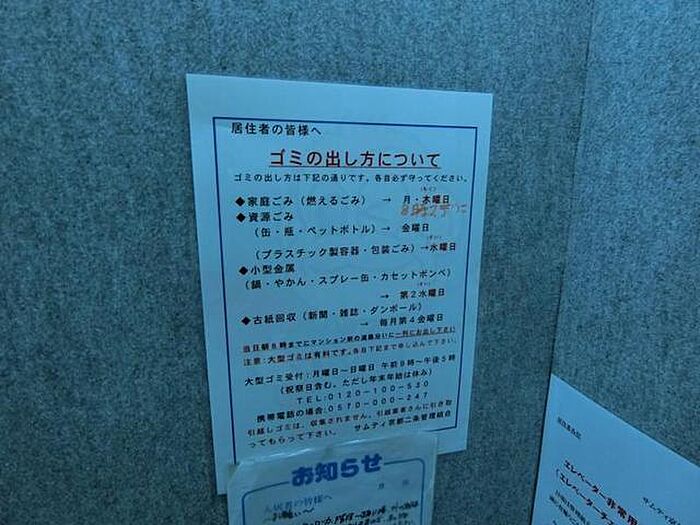 居住者の皆様へ
ゴミの出し方について
ゴミの出し方は下記の通りです。各自必ず守ってください。
◆家庭ごみ(燃えるごみ) → 月・木曜日
8時までに
◆資源ごみ
(缶・瓶・ペットボトル)→ 金曜日
(プラスチック製容器・包装ごみ)→水曜日
◆小型金属
(鍋・やかん・スプレー缶・カセットボンベ)
→ 第2水曜日
◆古紙回収(新聞・雑誌・ダンボール)
→ 毎月第4金曜日
当日朝8時までにマンション前の道路沿いに一列にお出し下さい
注意:大型ゴミは有料です。各自下記まで申し込んで下さい。
大型ゴミ受付:月曜日~日曜日 午前9時~午後5時
(祝祭日含む。ただし年末年始は休み)
TEL:0120-100-530
携帯電話の場合:0570-000-247
引越しゴミは、収集されません。引越業者さんに引き取
ってもらって下さい。 サムティ京都二条管理組合
お知らせ
月 日
入居者の皆様へ
居住者各位
サムティ
エレベーター非常用
(エレベーター